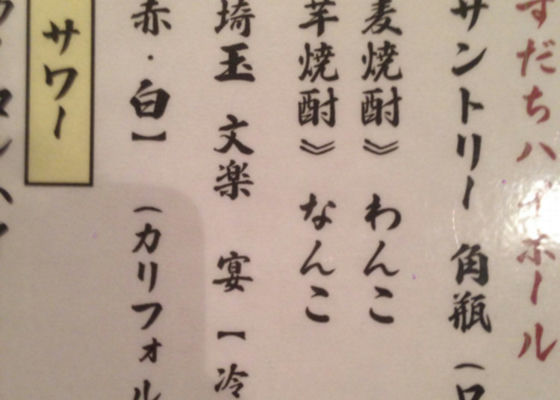 すだちハイボール
サントリー 角瓶 （ロ
麦焼酎》 わんこ
芋焼酎》 なんこ
埼玉 文楽 宴 【冷
赤・白】 （カリフォル
サワー